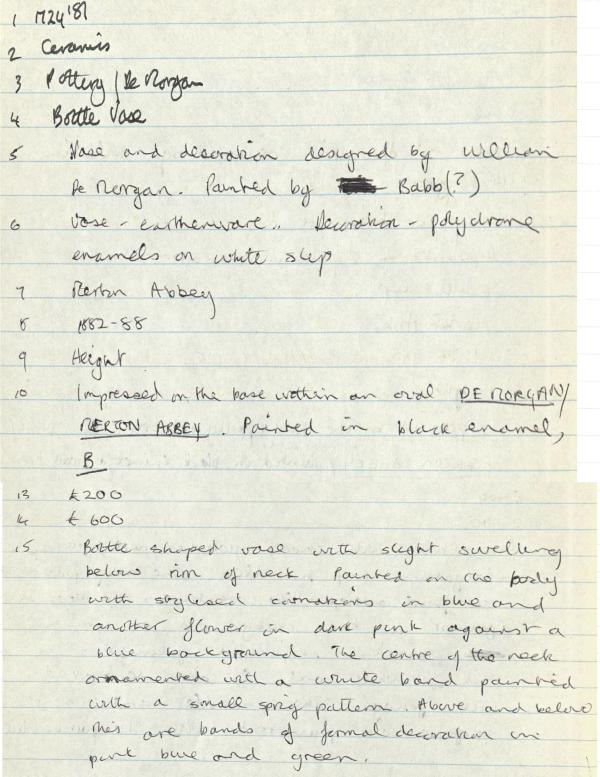 1 M24'87
2 Ceramics
3 Pottery / De Morgan
4 Bottle Vase
5 Vase and decoration designed by William
De Morgan. Painted by Babb(?)
6 Vase - earthenware.. Decoration - polychrome
enamels on white slip
7 Merton Abbey
8 1882-88
9 Height
10 Impressed on the base within an oval DE MORGAN/
MERTON ABBEY. Painted in black enamel,
B
13 £200
14 £600
15 Bottle shaped vase with slight swelling
below rim of neck. Painted on the body
with stylised carnations in blue and
another flower in dark pink against a
blue background. The centre of the neck
ornamented with a white band painted
with a small sprig pattern. Above and below
this are bands of formal decoration in
pink blue and green.